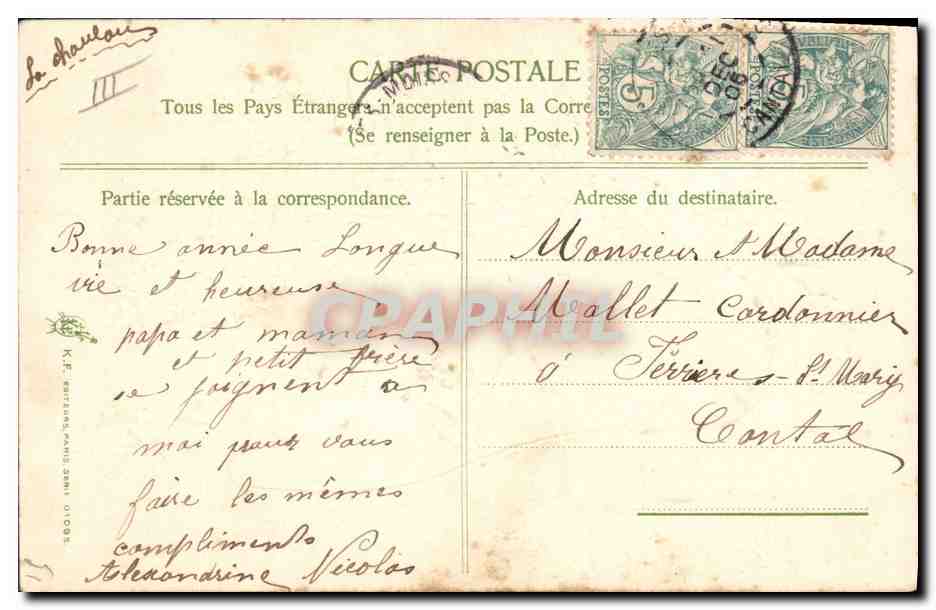 III
CARTE POSTALE
Tous les Pays Étrangers n'acceptent pas la Corre
(Se renseigner à la Poste.)
POSTES
5
DEC
CANTAL
Partie réservée à la correspondance.
Bonne année Longue
vie et heureuse
papa et maman
et petit frère
se joignent a
moi pour vous
faire les mêmes
compliments
Alexandrine Nicolas
K.F. EDITEURS, PARIS. SERIE
Adresse du destinataire.
Monsieur et Madame
Mallet Cordonnier
á Férrières-St Mary
Cantal
CPAPHIL